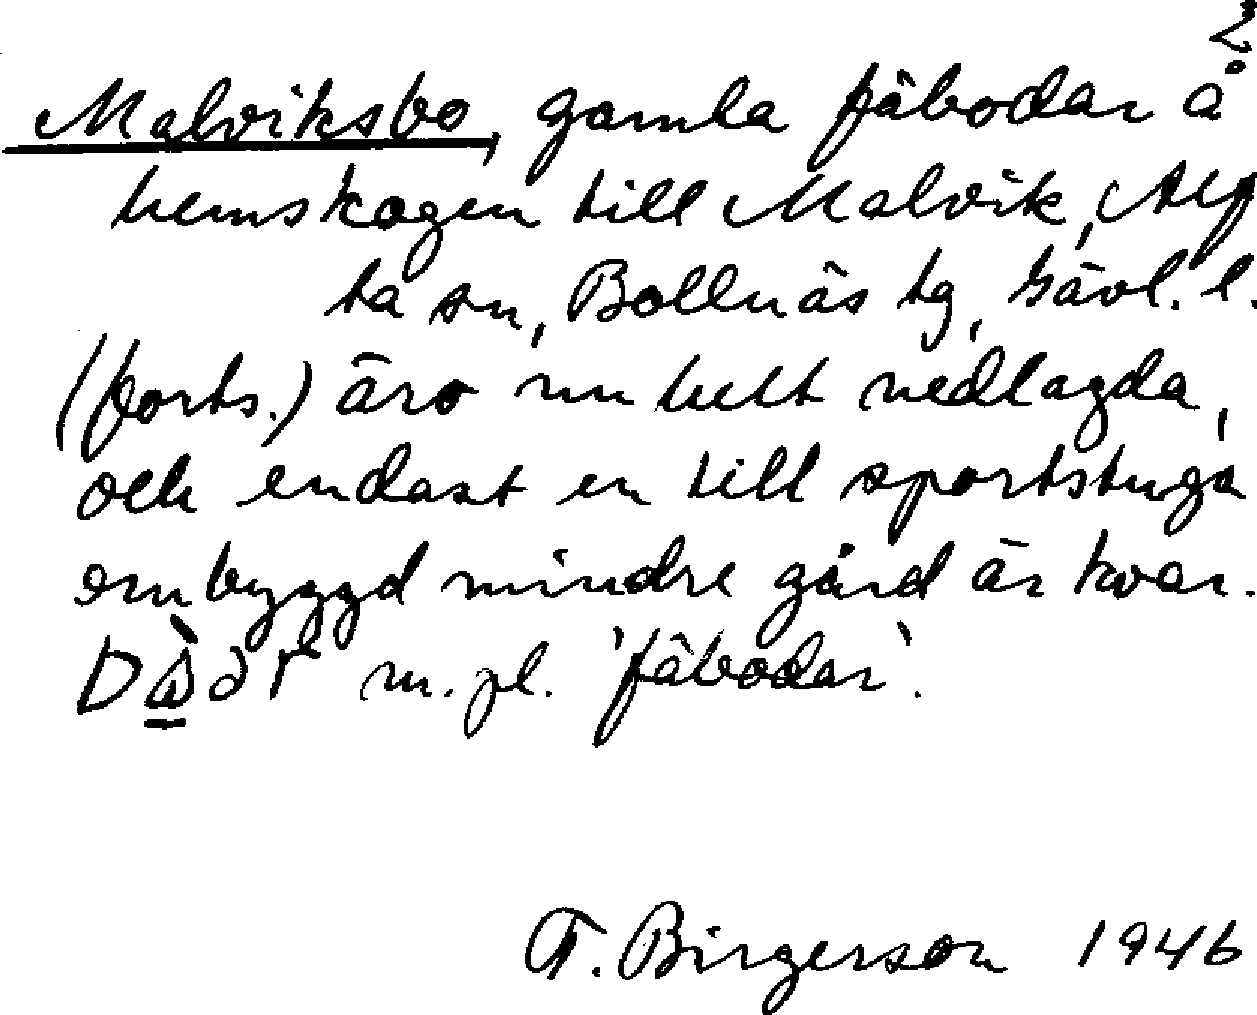 2
Malviksbo, gamla fäbodar å
hemskogen till Malvik, Alf
ta sn, Bollnäs tg, Gävl. l.
(forts.) äro nu helt nedlagda,
och endast en till sportstuga
ombyggd mindre gård är kvar.
m. pl. 'fäbodar'.
T. Birgerson 1946